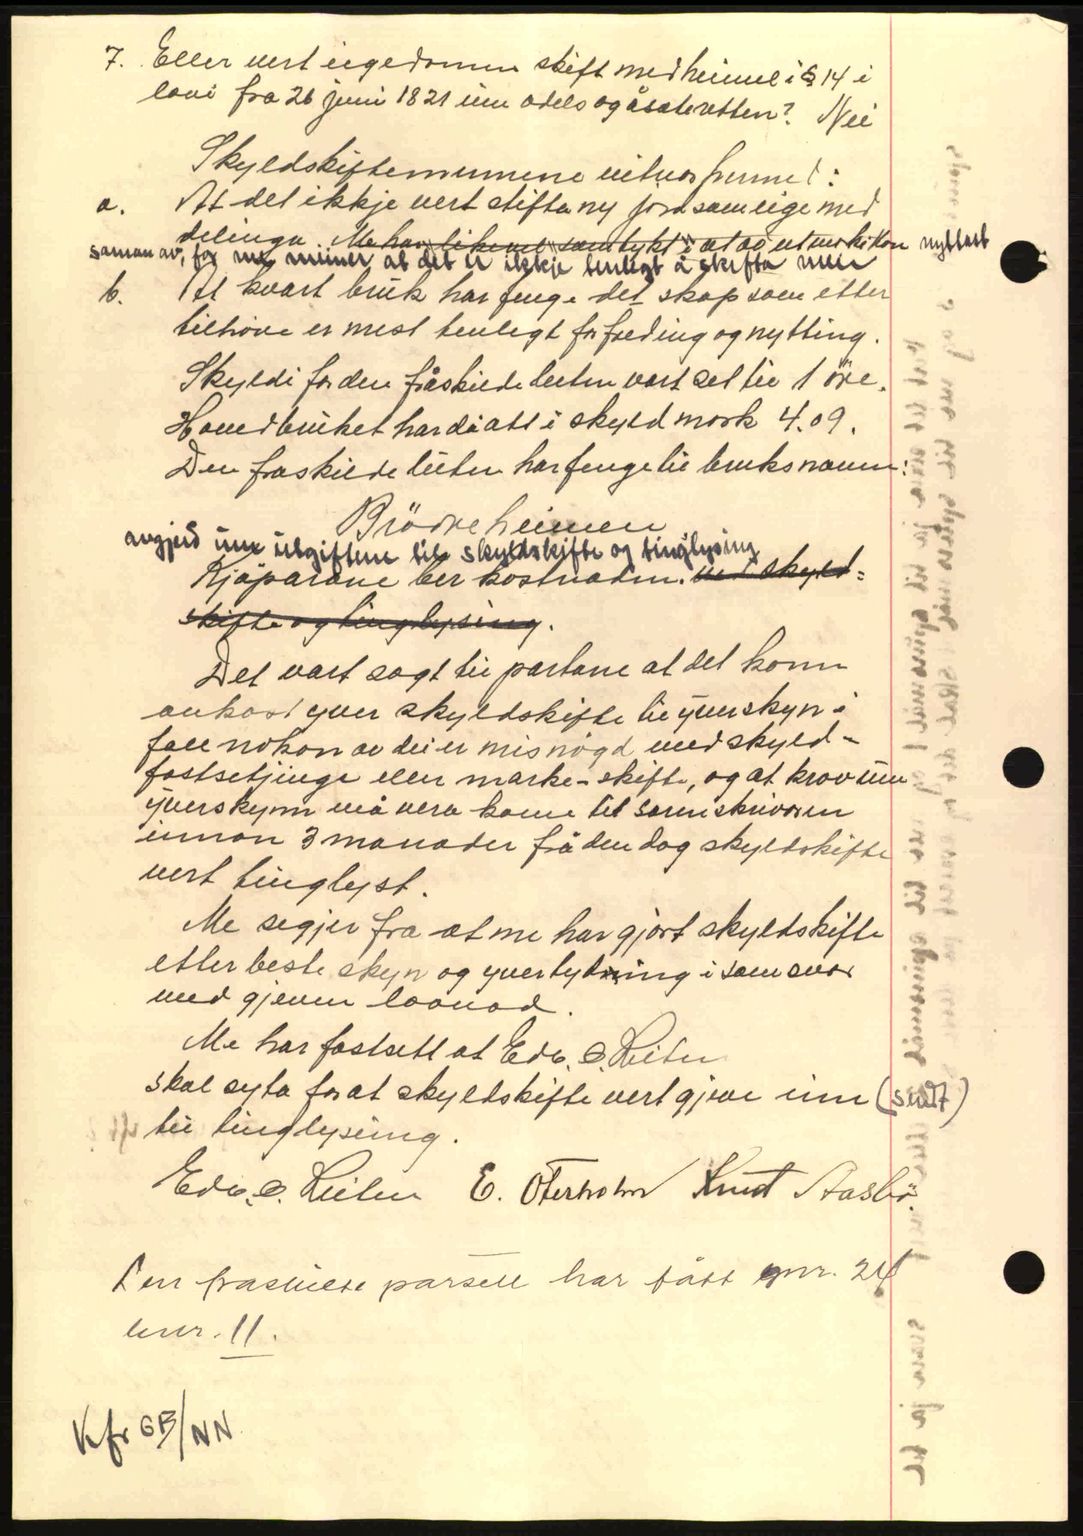 7. Eller vert eigedomen skift med heimel i § 14 i
lovi fra 26 juni 1821 um odels og åsetesretten? Nei
Skyldskiftemennene vitnar hermed:
a. At det ikkje vert skifta ny jordsameige med
delinga. Me har likevel samtykt i at ao utmerki kan nyttast
saman av, for me meiner at det er ikkje tenlegt å skifta meir
b. At kvart bruk har fenge det skap som etter
tilhøve er mest tenlegt for freding og nytting.
Skyldi for den fråskilde luten vart set til 1 öre.
Hovedbruket har då att i skyld mark 4.09.
Den fraskilde luten har fenge til bruksnamn:
Brödreheimen
avgjerd um utgiftene til skyldskifte og tinglysing
Kjöparane ber kostnaden. ved skyld=
skifte og tinglysing.
Det vart sagt til partane at det kann
ankast yver skyldskifte til yverskyn i
fall nokon av dei er misnögd med skyld-
fastsetjinge eller marke-skifte, og at krav um
yverskynn må vera kome til sorenskrivaren
innan 3 manader frå den dag skyldskifte
vert tinglyst.
Me segjer fra at me har gjort skyldskifte
etter beste skyn og yvertydning i samsvar
med gjeven lovnad.
Me har fastsett at Edv. E. Leiten
skal syta for at skyldskifte vert gjeve inn (sendt)
til tinglysing.
Edv. E. Leiten E. Oterholm Knut Aasbö.
Den fraskilte parsell har fått gnr. 24
bnr. 11.
Kfr GB/NN